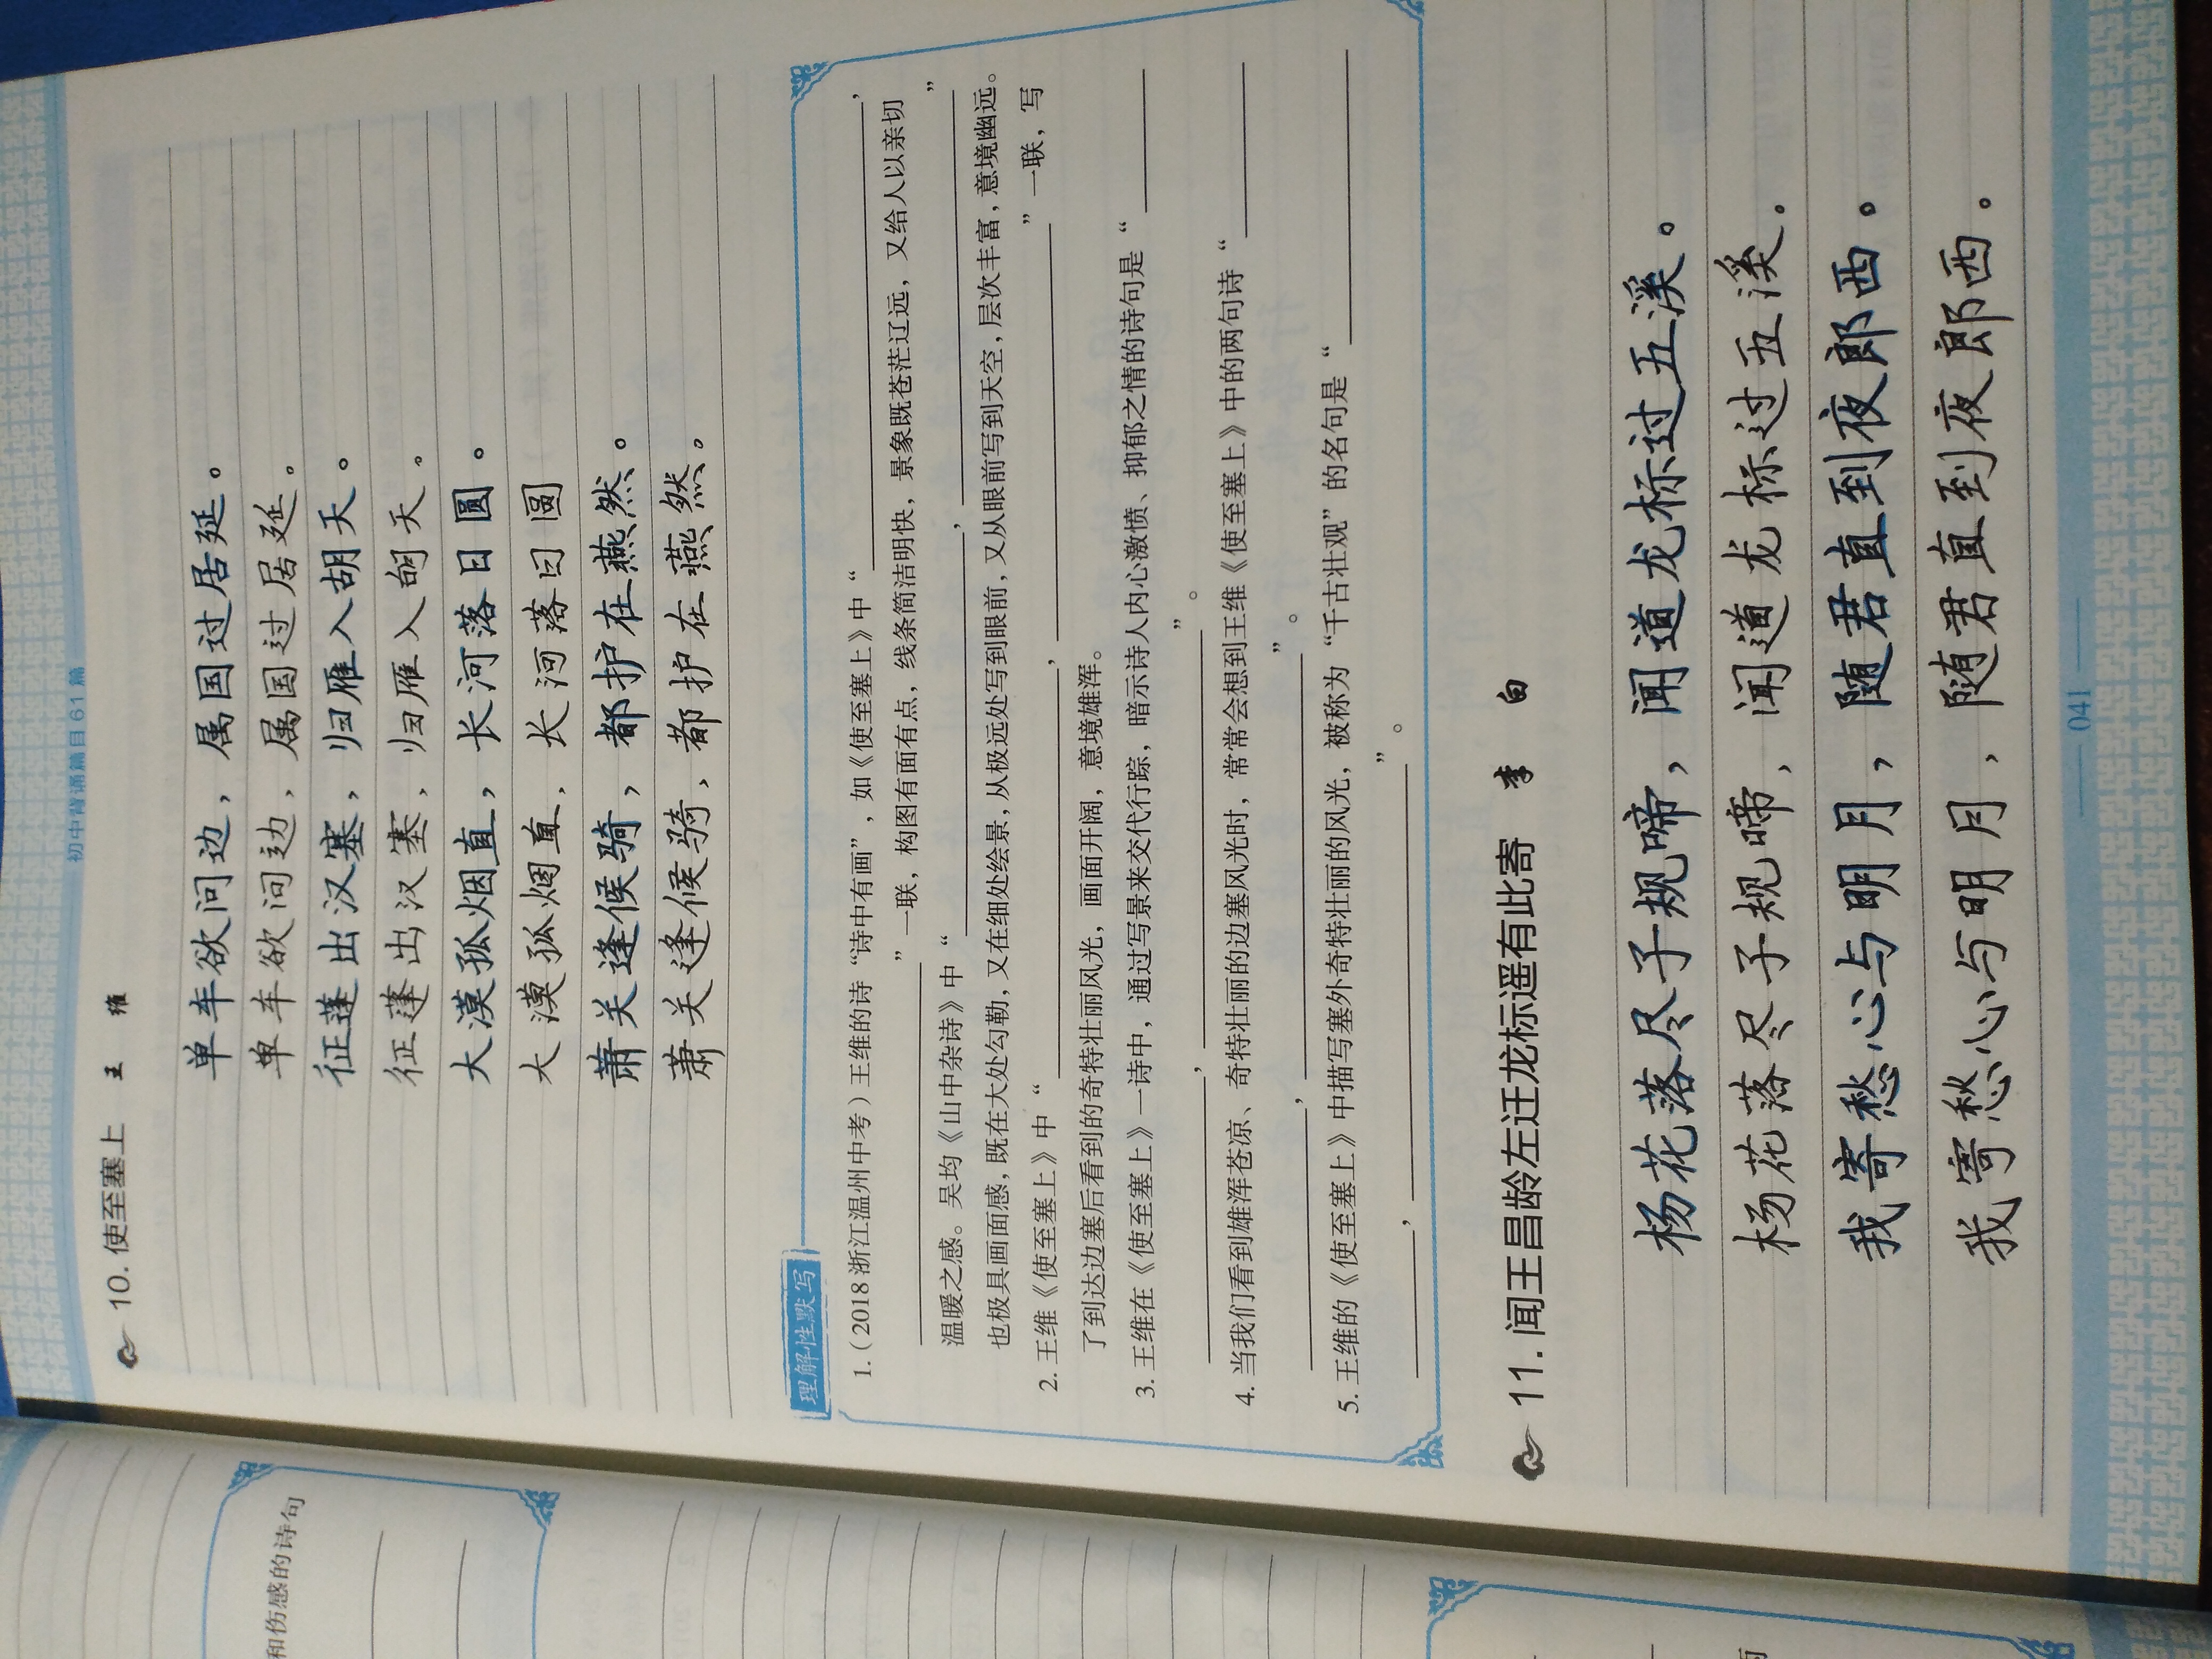 初中背诵篇目61篇
10.使至塞上 王 维
单车欲问边，属国过居延。
单车欲问边，属国过居延。
征蓬出汉塞，归雁入胡天。
征蓬出汉塞，归雁入胡天。
大漠孤烟直，长河落日圆。
大漠孤烟直，长河落日圆
萧关逢候骑，都护在燕然。
萧关逢候骑，都护在燕然。
理解性默写
1.（2018浙江温州中考）王维的诗“诗中有画”，如《使至塞上》中“
，
”一联，构图有面有点，线条简洁明快，景象既苍茫辽远，又给人以亲切
温暖之感。吴均《山中杂诗》中“ ， ”
也极具画面感，既在大处勾勒，又在细处绘景，从极远处写到眼前，又从眼前写到天空，层次丰富，意境幽远。
2.王维《使至塞上》中“ ， ”一联，写
了到达边塞后看到的奇特壮丽风光，画面开阔，意境雄浑。
3.王维在《使至塞上》一诗中，通过写景来交代行踪，暗示诗人内心激愤、抑郁之情的诗句是“
， ”。
4.当我们看到雄浑苍凉、奇特壮丽的边塞风光时，常常会想到王维《使至塞上》中的两句诗“
， ”。
5.王维的《使至塞上》中描写塞外奇特壮丽的风光，被称为“千古壮观”的名句是“
， ”。
11.闻王昌龄左迁龙标遥有此寄 李 白
杨花落尽子规啼，闻道龙标过五溪。
杨花落尽子规啼，闻道龙标过五溪.
我寄愁心与明月，随君直到夜郎西。
我寄愁心与明月，随君直到夜郎西.
041
和伤感的诗句